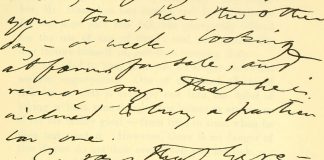 your town, here the other
day - or week, looking
at farms for sale, and
rumor say that he is
inclined to buy a particu
lar one.
that have -